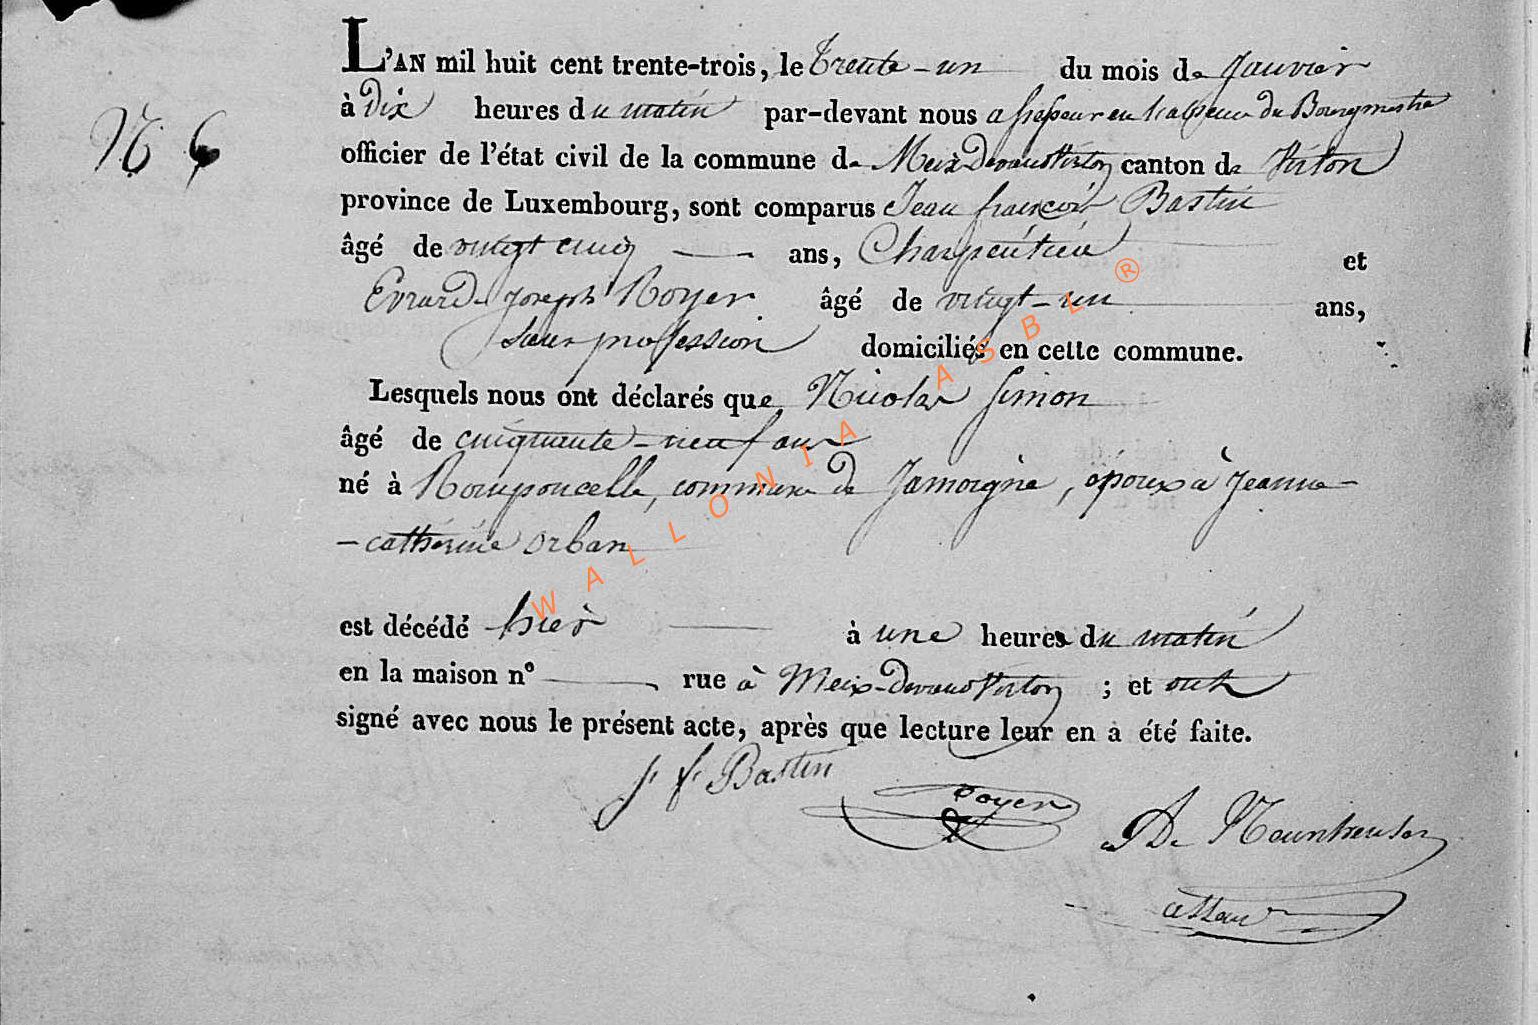 L'AN mil huit cent trente-trois, le trente-un du mois de Janvier
N. 6
à Dix heures du matin par-devant nous assesseur en l'absence du Bourgmestre
officier de l'état civil de la commune de Meix-Devant Virton canton de Virton
province de Luxembourg, sont comparus Jean françois Bastin
âgé de vingt cinq ans, Charpentier et
Evrard-Joseph Royer âgé de vingt-un ans,
sans profession domiciliés en cette commune.
Lesquels nous ont déclarés que Nicolas Simon
âgé de cinquante-neuf ans
né à Romponcelle, commune de Jamoigne, époux à Jeanne-
-cathérine Orban
est décédé hier à une heures du matin
en la maison nº rue à Meix-Devant Virton ; et ont
signé avec nous le présent acte, après que lecture leur en a été faite.
J. f. Bastin
Royer
A. De
WALLONIA ASBL ®